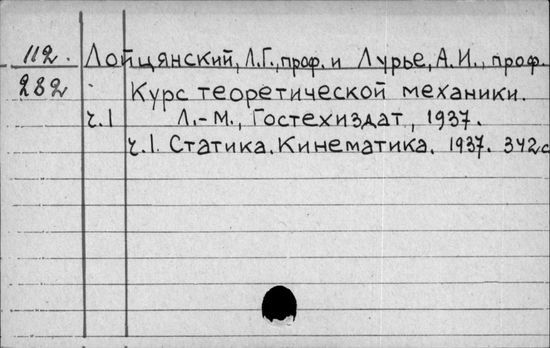 112. Лойцянский, Л.Г., проф. и Лурье, А.И., проф.
282 Курс теоретической механики.
ч.1 Л.-М., Гостехиздат, 1937.
ч.1. Статика. Кинематика. 1937. 342с